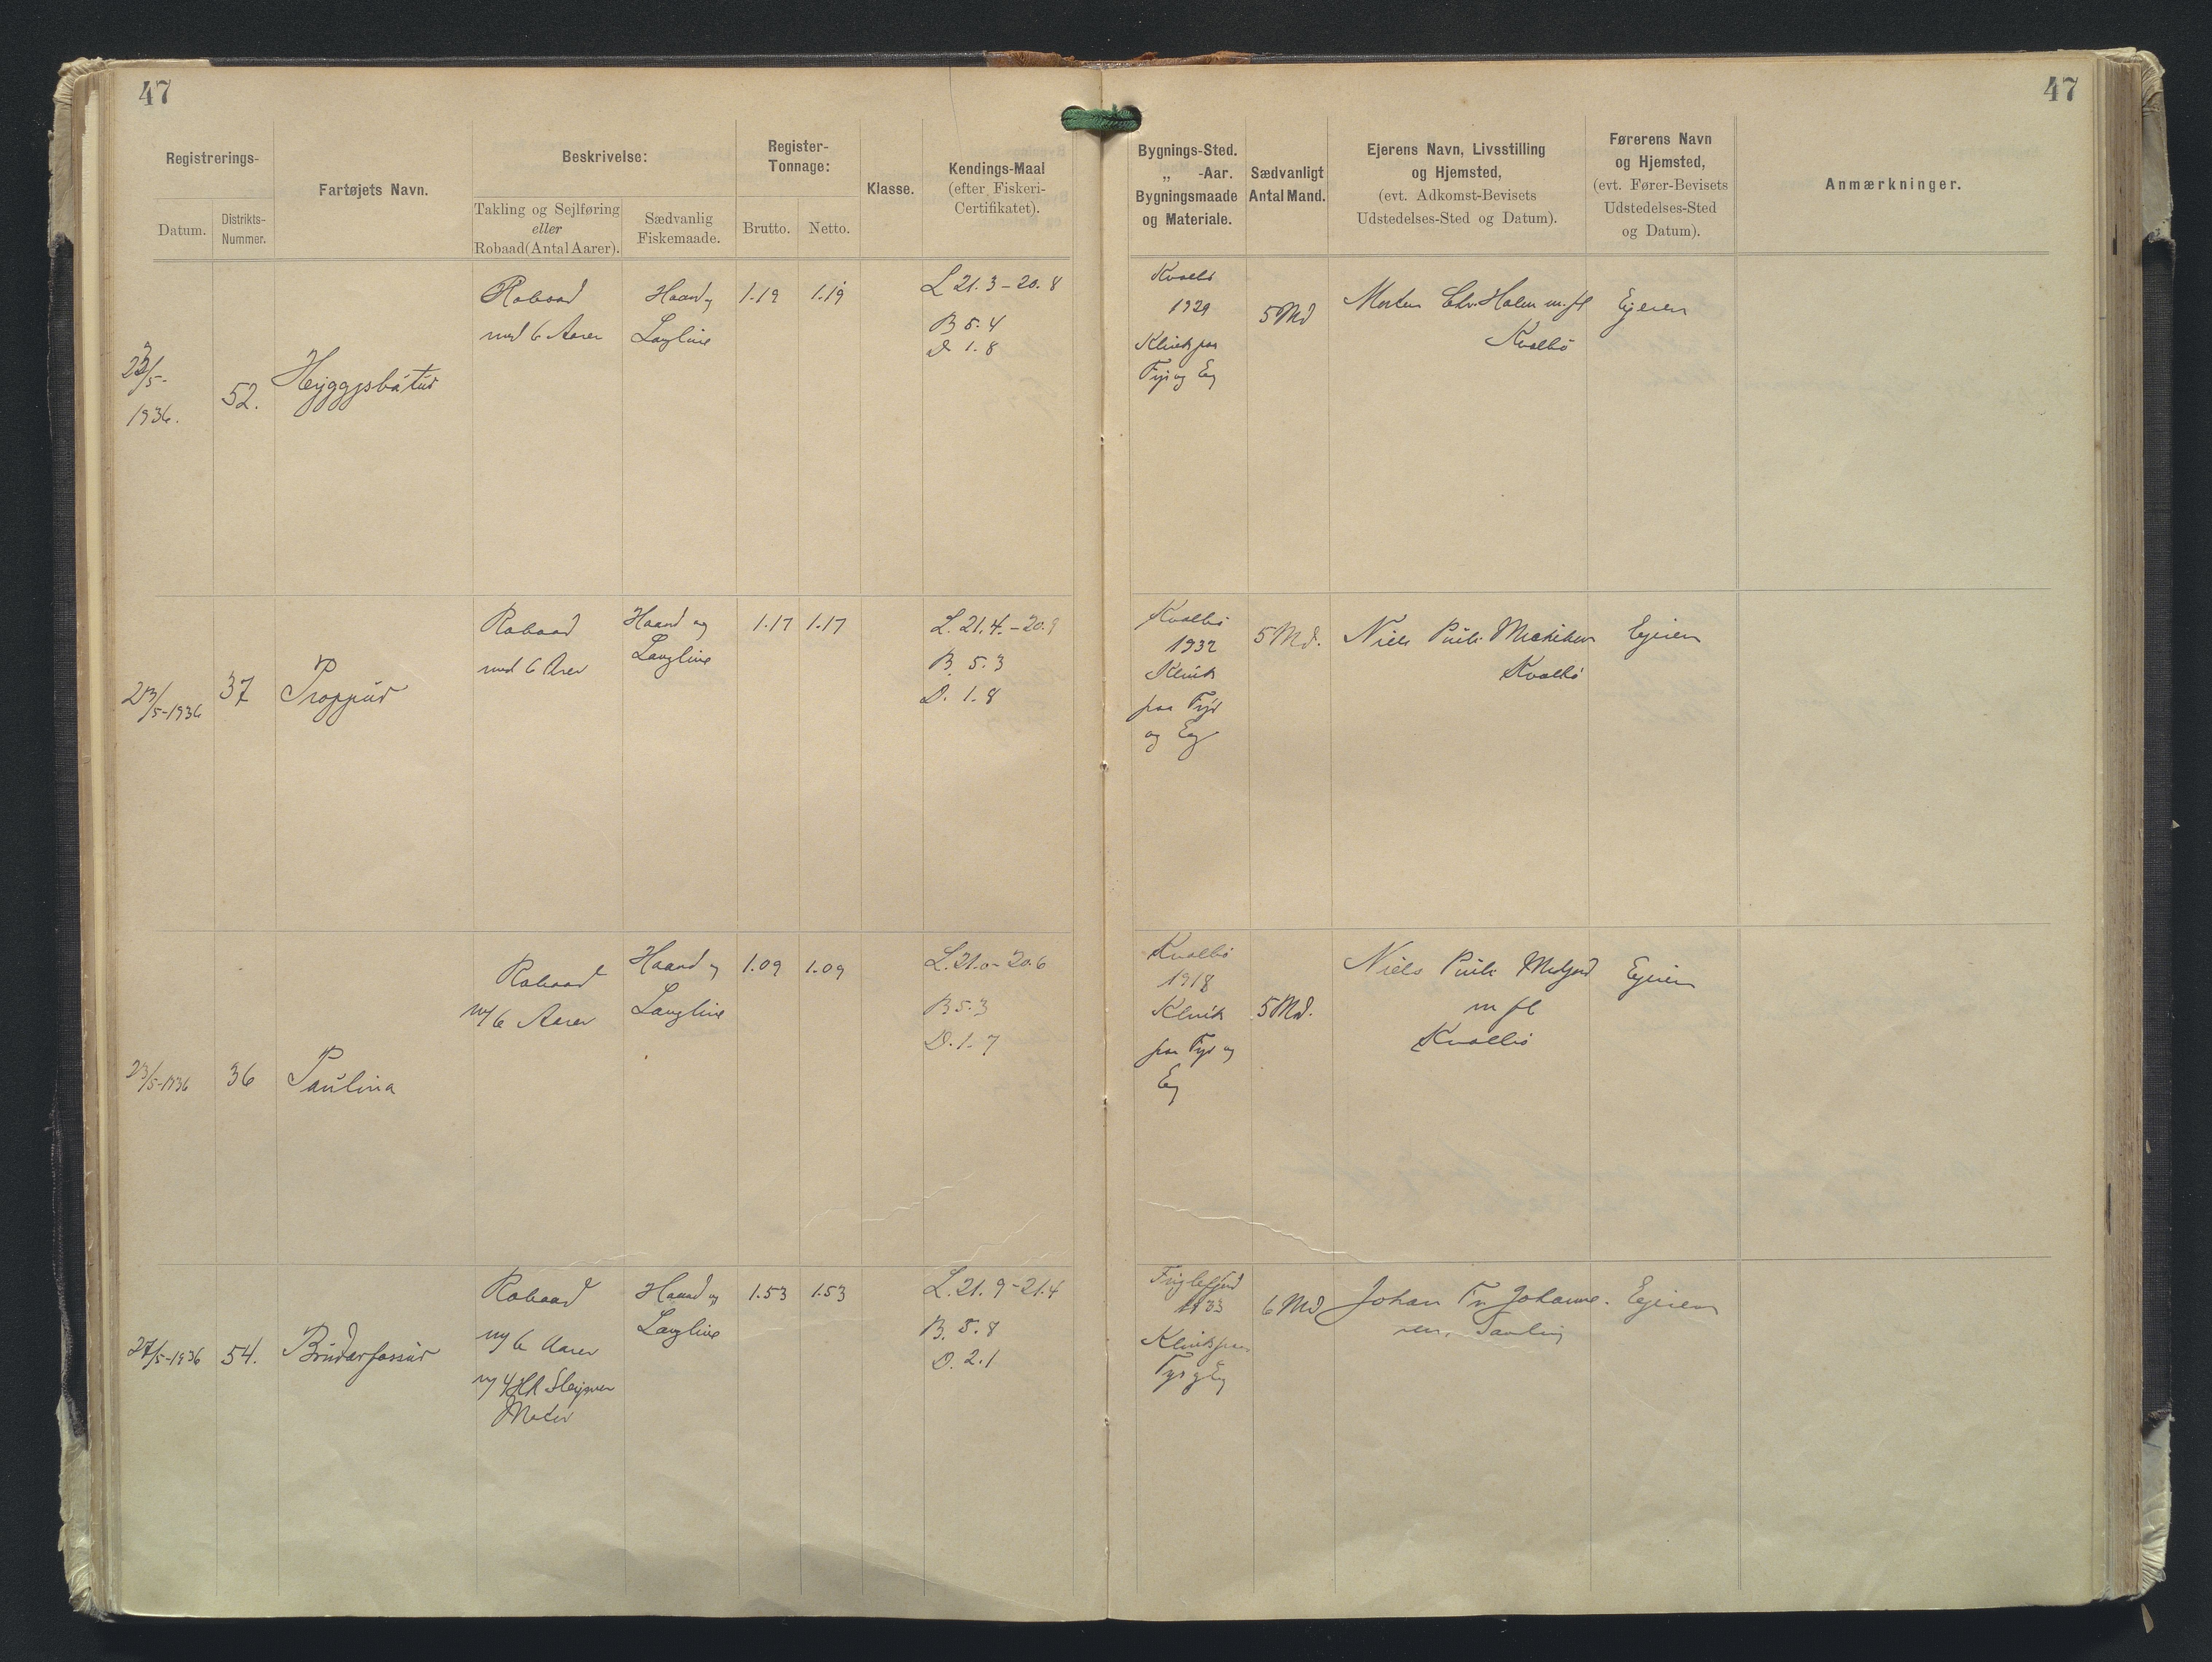 47
47
Registrerings-
Datum.
Distrikts-
Nummer.
Fartøjets Navn.
Beskrivelse:
Takling og Sejlføring
eller
Robaad (Antal Aarer).
Sædvanlig
Fiskemaade.
Register-
Tonnage:
Brutto.
Netto.
Klasse.
Kendings-Maal
(efter Fiskeri-
Certifikatet).
Bygnings-Sted.
„ -Aar.
Bygningsmaade
og Materiale.
Sædvanligt
Antal Mand.
Ejerens Navn, Livsstilling
og Hjemsted,
(evt. Adkomst-Bevisets
Udstedelses-Sted og Datum).
Førerens Navn
og Hjemsted,
(evt. Fører-Bevisets
Udstedelses-Sted
og Datum).
Anmærkninger.
23/5-
1936.
52.
Robaad
med 6 Aarer
Haand og
Langline
1.19
1.19
L 21.3 - 20.8
B 5.4
D 1.8
Kvalbø
1929
Klink paa
Fyr og Eg
5 Md
Morten Chr. Holm m.fl
Kvalbø
Ejeren
23/5-1936
37
Proppur
Robaad
med 6 Arer
Haand og
Langline
1.17
1.17
L. 21.4. - 20.9
B. 5.3
D. 1.8
Kvalbø
1932
Klink
paa Fyr
og Eg
5 Md.
Niels
Kvalbø
Ejeren
23/5-1936
36
Paulina
Robaad
m/6 Aarer
Haand og
Langline
1.09
1.09
L. 21.0 - 20.6
B 5.3
D. 1.7
Kvalbø
1918
Klink
paa Fyr og
Eg
5 Md.
Niels
m fl
Kvalbø
Ejeren
27/5-1936
54.
Robaad
m/ 6 Aarer
m/ 4 HK Sleipner
Motor
Haand og
Langline
1.53
1.53
L. 21.9 - 21.4
B. 5.8
D. 2.1
Fuglefjord
1933
Klink paa
Fyr og Eg
6 Md
Johan Fr. Johanne-
sen,
Ejeren